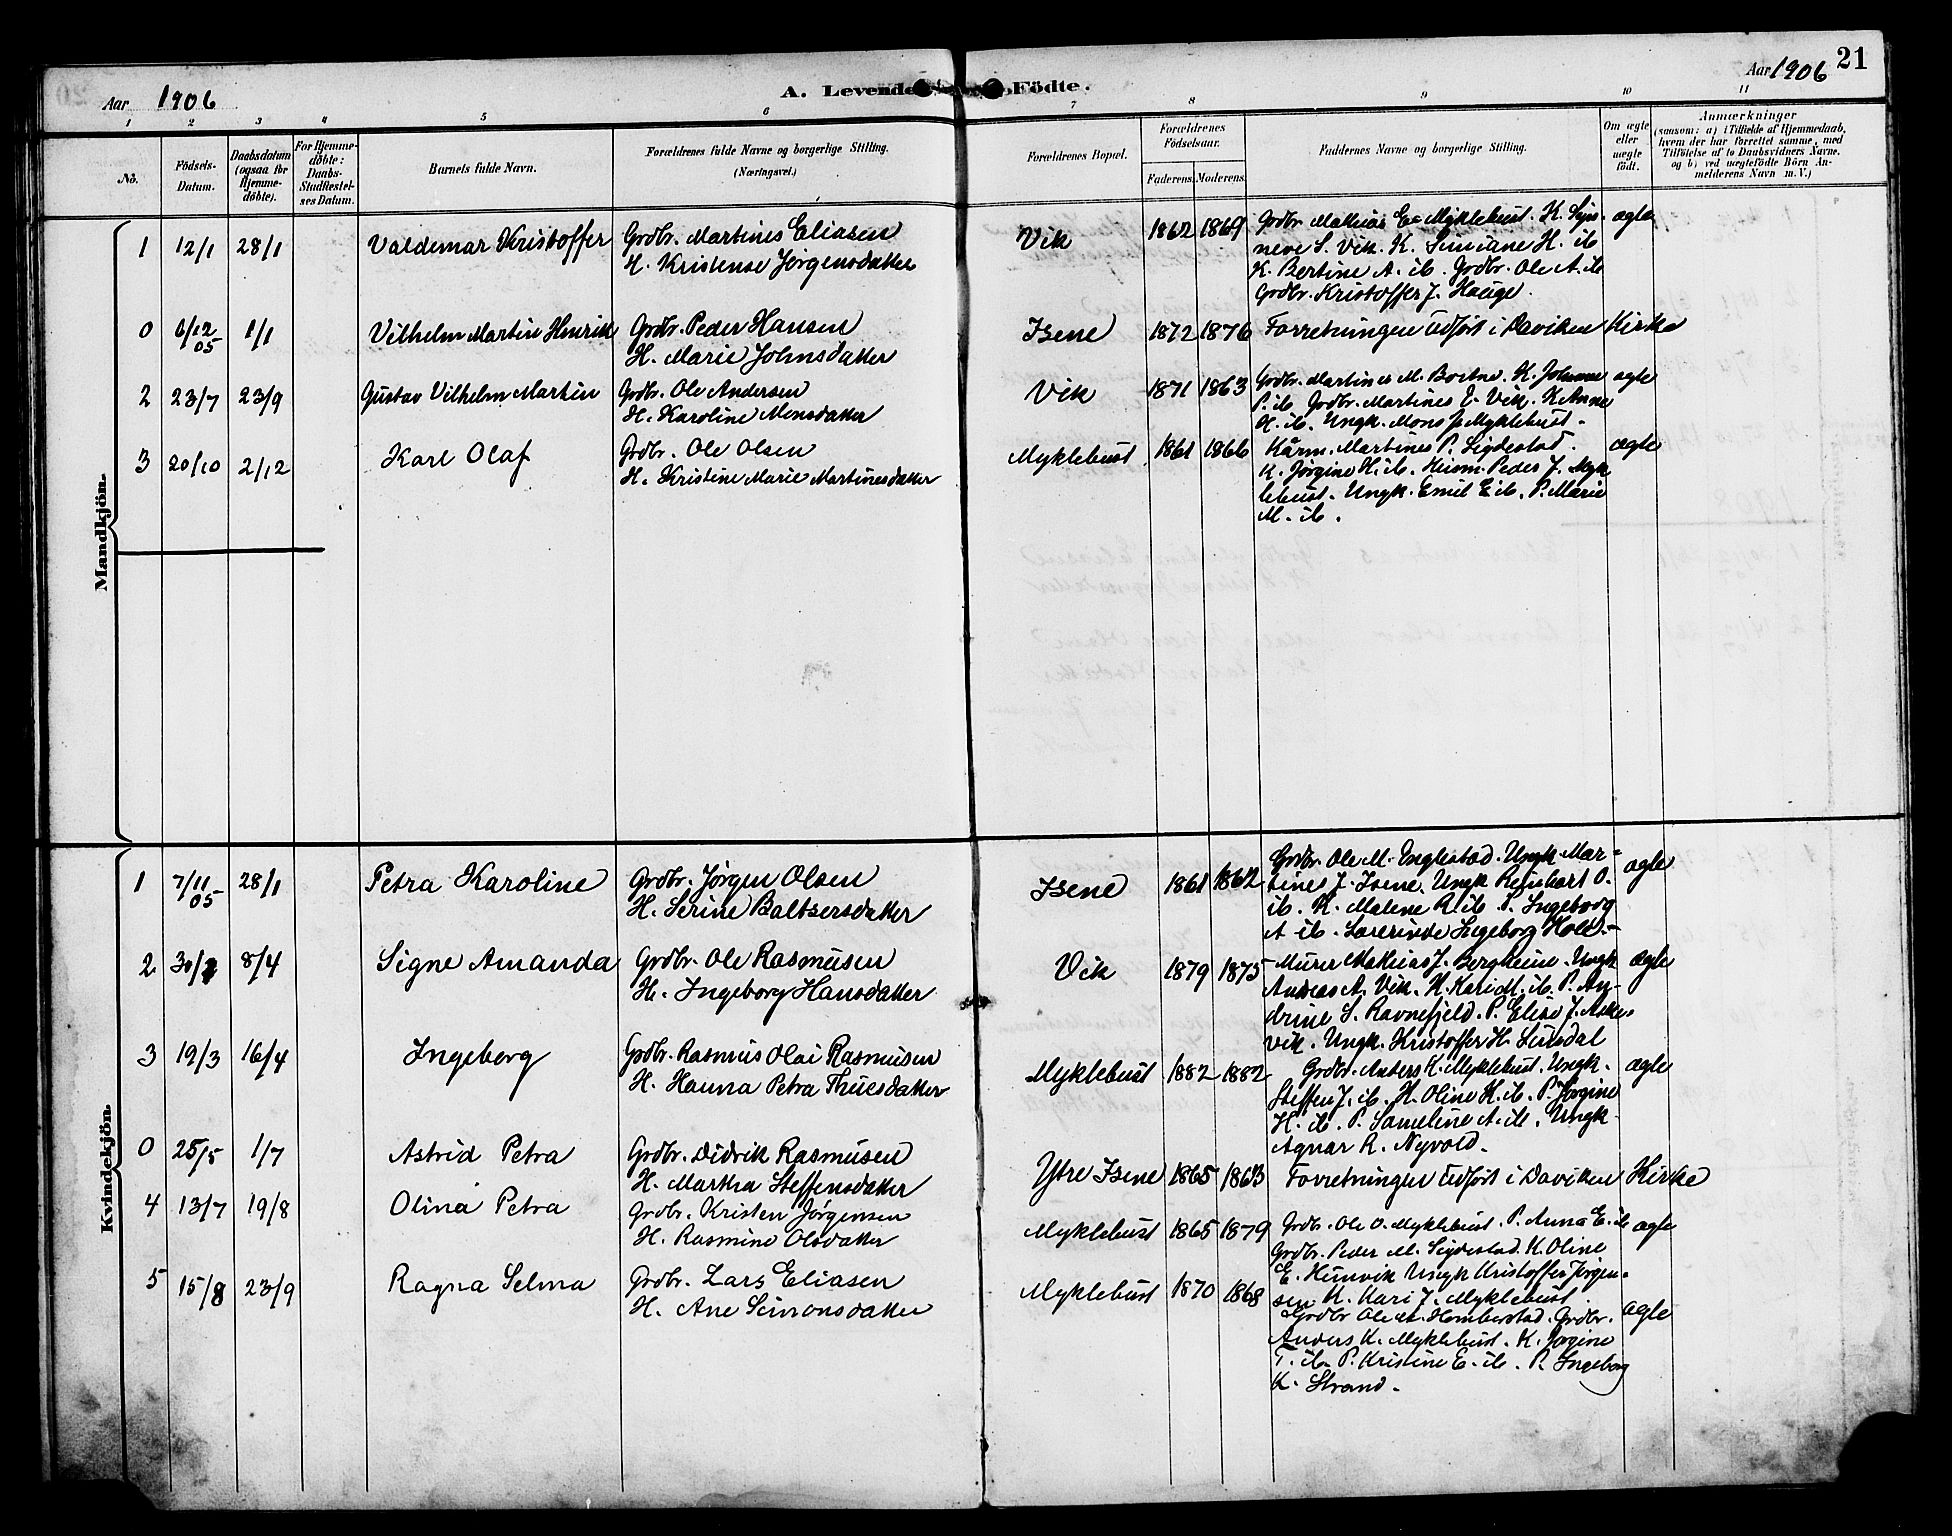 21
Aar 1906
A. Levende Födte.
Aar 1906
1 2 3 4 5 6 7 8 9 10 11
No.
Födsels-Datum.
Daabsdatum (ogsaa for Hjemme-döbte).
For Hjemme-döbte: Daabs-Stadfæstel-ses Datum.
Barnets fulde Navn.
Forældrenes fulde Navne og borgerlige Stilling.
(Næringsvei.)
Forældrenes Bopæl.
Forældrenes Födselsaar.
Faderens. Moderens.
Faddernes Navne og borgerlige Stilling.
Om ægte eller uægte födt.
Anmærkninger
(saasom: a) i Tilfælde af Hjemmedaab,
hvem der har forrettet samme, med
Tilföielse af to Daabsvidners Navne.
og b) ved uægtefödte Börn An-
melderens Navn m. V.)
Mandkjön.
1 12/1 28/1 Valdemar Kristoffer Grdbr. Martines Eliasen Vik 1862 1869 Grdbr Mathias E. Myklebust. K. Syn- ægte
H. Kristense Jørgensdatter neve S. Vik. K. Simiane H. ib
K. Bertine A. ib. Grdbr. Ole A. ib
Grdbr. Kristoffer J. Hauge.
0 6/12 05 1/1 Vilhelm Martin Henrik Grdbr. Peder Hansen Isene 1872 1876 Forretningen udført i Daviken Kirke
H. Marie Johnsdatter
2 23/7 23/9 Gustav Vilhelm Martin Grdbr. Ole Andersen Vik 1871 1863 Grdbr. Martines M. Bortne. K. Johanne ægte
H. Karoline Monsdatter P. ib Grdbr. Martines E. Vik. K Anne
H. ib. Ungk. Mons J. Myklebust.
3 20/10 2/12 Karl Olaf Grdbr. Ole Olsen Myklebust 1861 1866 Kårm. Martines P. Sigdestad. ægte
H. Kristine Marie Martinesdatter K. Jørgine H. ib. Husm. Peder J. Myk
lebust. Ungk. Emil E. ib. P. Marie
M. ib.
Kvindekjön.
1 7/11 05 28/1 Petra Karoline Grdbr. Jørgen Olsen Isene 1861 1862 Grdbr. Ole M. Englestad. Ungk Mar- ægte
H. Serine Baltsersdatter tines J. Isene. Ungk Reinhart O.
ib. K. Malene R. ib P. Ingeborg
A ib. Lærerinde Ingeborg Hole.
2 30/ 8/4 Signe Amanda Grdbr. Ole Rasmusen Vik 1879 1875 Murer Mathias J. Bergheim. Ungk ægte
H. Ingeborg Hansdatter Andreas A. Vik. K. Kari M. ib. P. An-
drine S. Ravnefjeld. P. Elise J. Aske-
vik. Ungk. Kristoffer H.
3 19/3 16/4 Ingeborg Grdbr. Rasmus Olai Rasmusen Myklebust 1882 1882 Grdbr. Anders K. Myklebust. Ungk. ægte
H. Hanna Petra Thuesdatter Steffen J. ib. K. Oline K. ib. P. Jørgine
K. ib. P. Sameline A. ib. Ungk
Agnar R. Nyvold.
0 25/5 1/7 Astrid Petra Grdbr. Didrik Rasmusen Ytre Isene 1865 1863 Forretningen udført i Daviken Kirke
H. Martha Steffensdatter
4 13/7 19/8 Olina Petra Grdbr. Kristen Jørgensen Myklebust 1865 1879 Grdbr. Ole O. Myklebust. P. Anna E. ib ægte
H. Rasmine Olsdatter Grdbr. Peder M. Sigdestad. K. Oline
E. Hunvik Ungk Kristoffer Jørgen-
sen K. Kari J. Myklebust
5 15/8 23/9 Ragna Selma Grdbr. Lars Eliasen Myklebust 1870 1868 Grdbr Ole A. Homberstad. Grdbr. ægte
H. Ane Simonsdatter Anders K. Myklebust. K. Jørgine
T. ib. P. Kristine E. ib. P. Ingeborg
K. Strand.